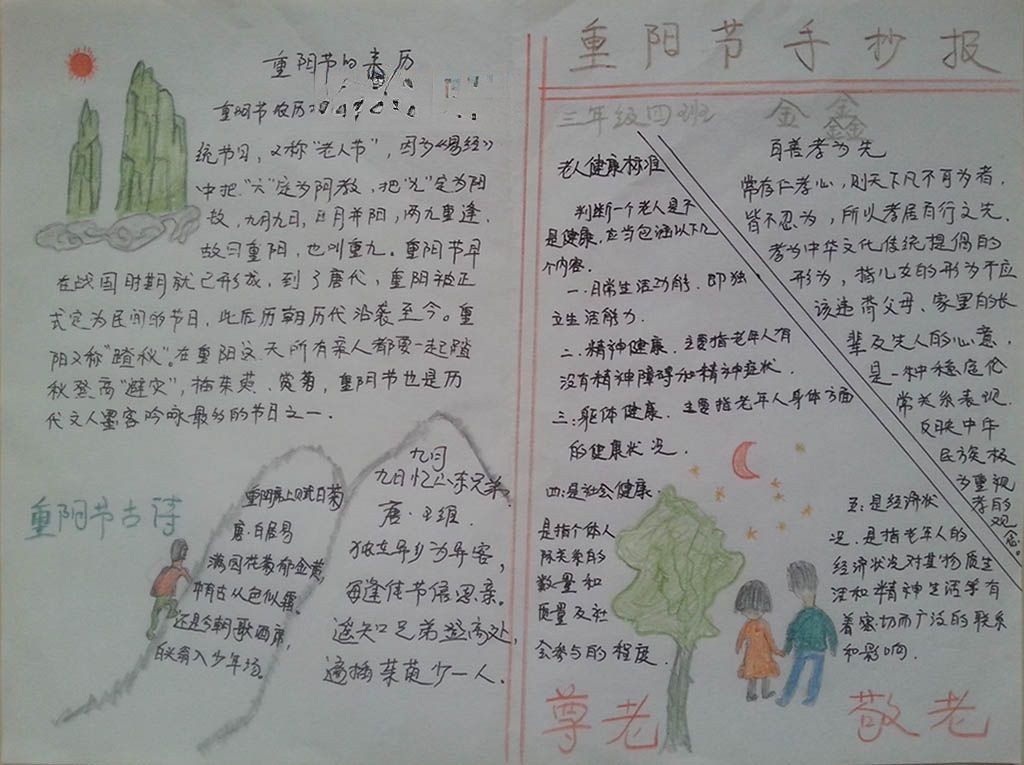 重阳节的来历
重阳节农历
统节日,又称"老人节",因为《易经》
中把"六"定为阴数,把"九"定为阳
数,九月九日,日月并阳,两九重逢,
故曰重阳,也叫重九。重阳节早
在战国时期就已形成,到了唐代,重阳被正
式定为民间的节日,此后历朝历代沿袭至今。重
阳又称"踏秋"。在重阳这天所有亲人都要一起踏
秋登高"避灾",插茱萸、赏菊,重阳节也是历
代文人墨客吟咏最多的节日之一.
重阳节古诗
重阳席上赋白菊
唐·白居易
满园花菊郁金黄,
中有孤丛色似霜.
还是今朝歌酒席,
白头翁入少年场.
九月
九日忆山东兄弟
唐·王维.
独在异乡为异客,
每逢佳节倍思亲.
遥知兄弟登高处,
遍插茱萸少一人.
重阳节手抄报
三年级四班 金鑫
老人健康标准
判断一个老人是不
是健康,应当包涵以下几
个内容.
一.日常生活功能.即独
立生活能力.
二.精神健康.主要指老年人有
没有精神障碍和精神症状.
三:躯体健康.主要指老年人身体方面
的健康状况.
四:是社会健康.
是指个体人
际关系的
数量和
质量及社
会参与的程度.
五:是经济状
况.是指老年人的
经济状况对其物质生
活和精神生活学有
着密切而广泛的联系
和影响.
百善孝为先
常存仁孝心,则天下凡不可为者,
皆不忍为,所以孝居百行之先.
孝为中华文化传统提倡的
形为,指儿女的形为不应
该违背父母、家里的长
辈及先人的心意,
是一种稳定伦
常关系表现.
反映中华
民族极
为重视
孝的
观
念。
尊老
敬老